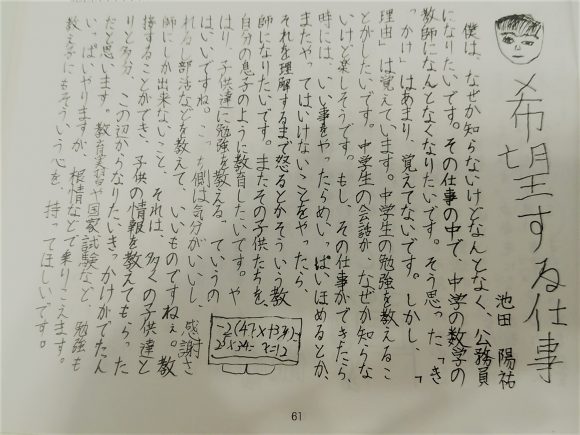 希望する仕事
池田 陽祐
僕は、なぜか知らないけどなんとなく、公務員
になりたいです。その仕事の中で、中学の数学の
教師になんとなくなりたいです。そう思った「き
っかけ」はあまり、覚えてないです。しかし、「
理由」は覚えています。中学生の勉強を教えるこ
とがしたいです。中学生の会話が、なぜか知らな
いけど楽しそうです。もし、その仕事ができたら、
時には、いい事をやったらめいっぱいほめるとか、
またやってはいけないことをやったら、
それを理解するまで怒るとかそういう教
師になりたいです。またその子供たちを、
自分の息子のように教育したいです。や
はり、子供達に勉強を教える。っていうの
はいいですね。こっち側は気分がいいし、感謝さ
れるし部活などを教えて、いいものですねぇ。教
師にしか出来ないこと、それは、多くの子供達と
接することができ、子供の情報を教えてもらった
りと多分、この辺からなりたいきっかけがでたん
だと思います。教育実習や国家試験など、勉強も
いっぱいやりますが、根情などで乗りこえます。
教え子にもそういう心を、持ってほしいです。
61